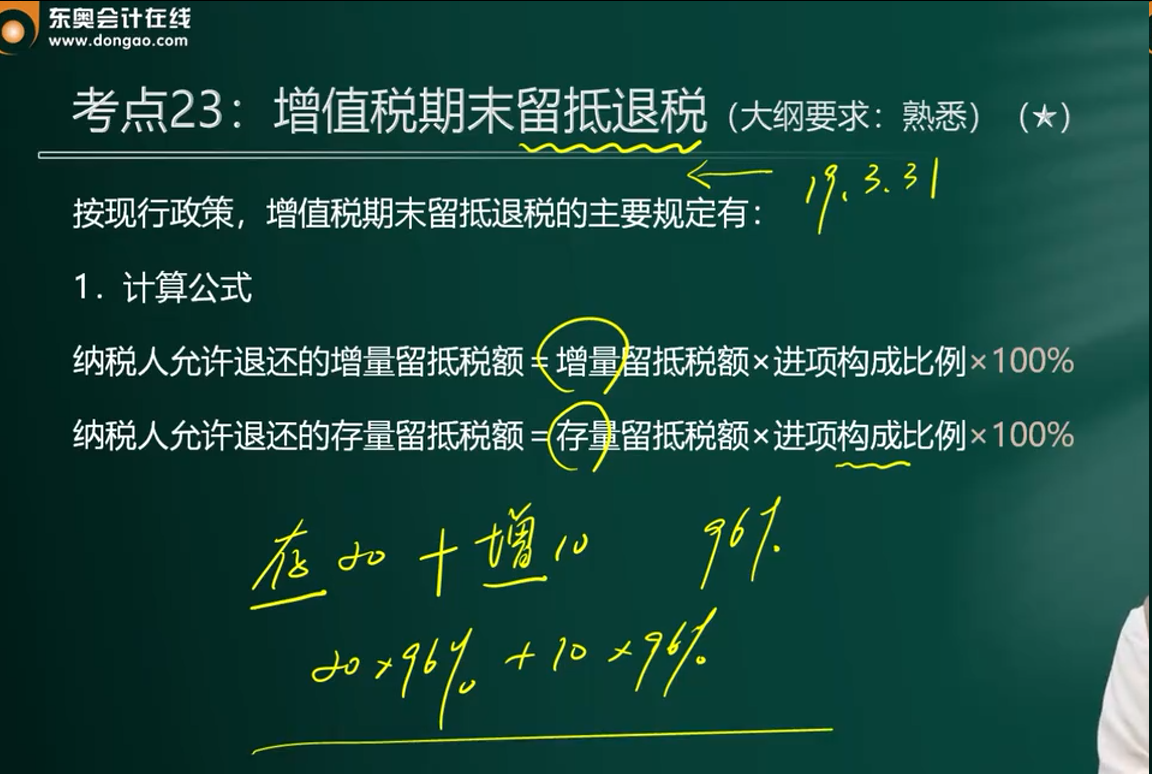 东奥会计在线
www.dongao.com
考点23：增值税期末留抵退税（大纲要求：熟悉）（★）
19.3.31
按现行政策，增值税期末留抵退税的主要规定有：
1．计算公式
纳税人允许退还的增量留抵税额=增量留抵税额×进项构成比例×100%
纳税人允许退还的存量留抵税额=存量留抵税额×进项构成比例×100%
存20+增10 96%
20×96%+10×96%